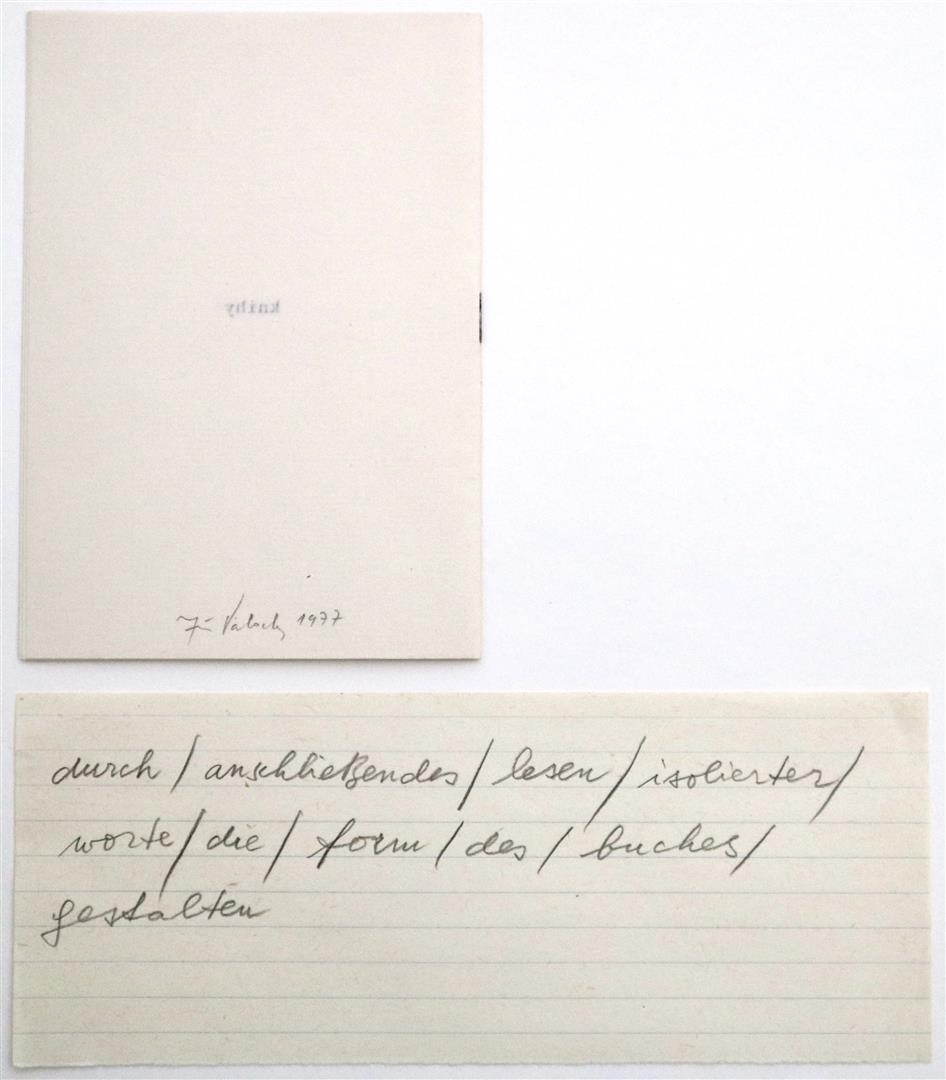 knihy
Jiří Valoch 1977
durch / anschließendes / lesen / isolierter /
worte / die / form / des / buches /
gestalten